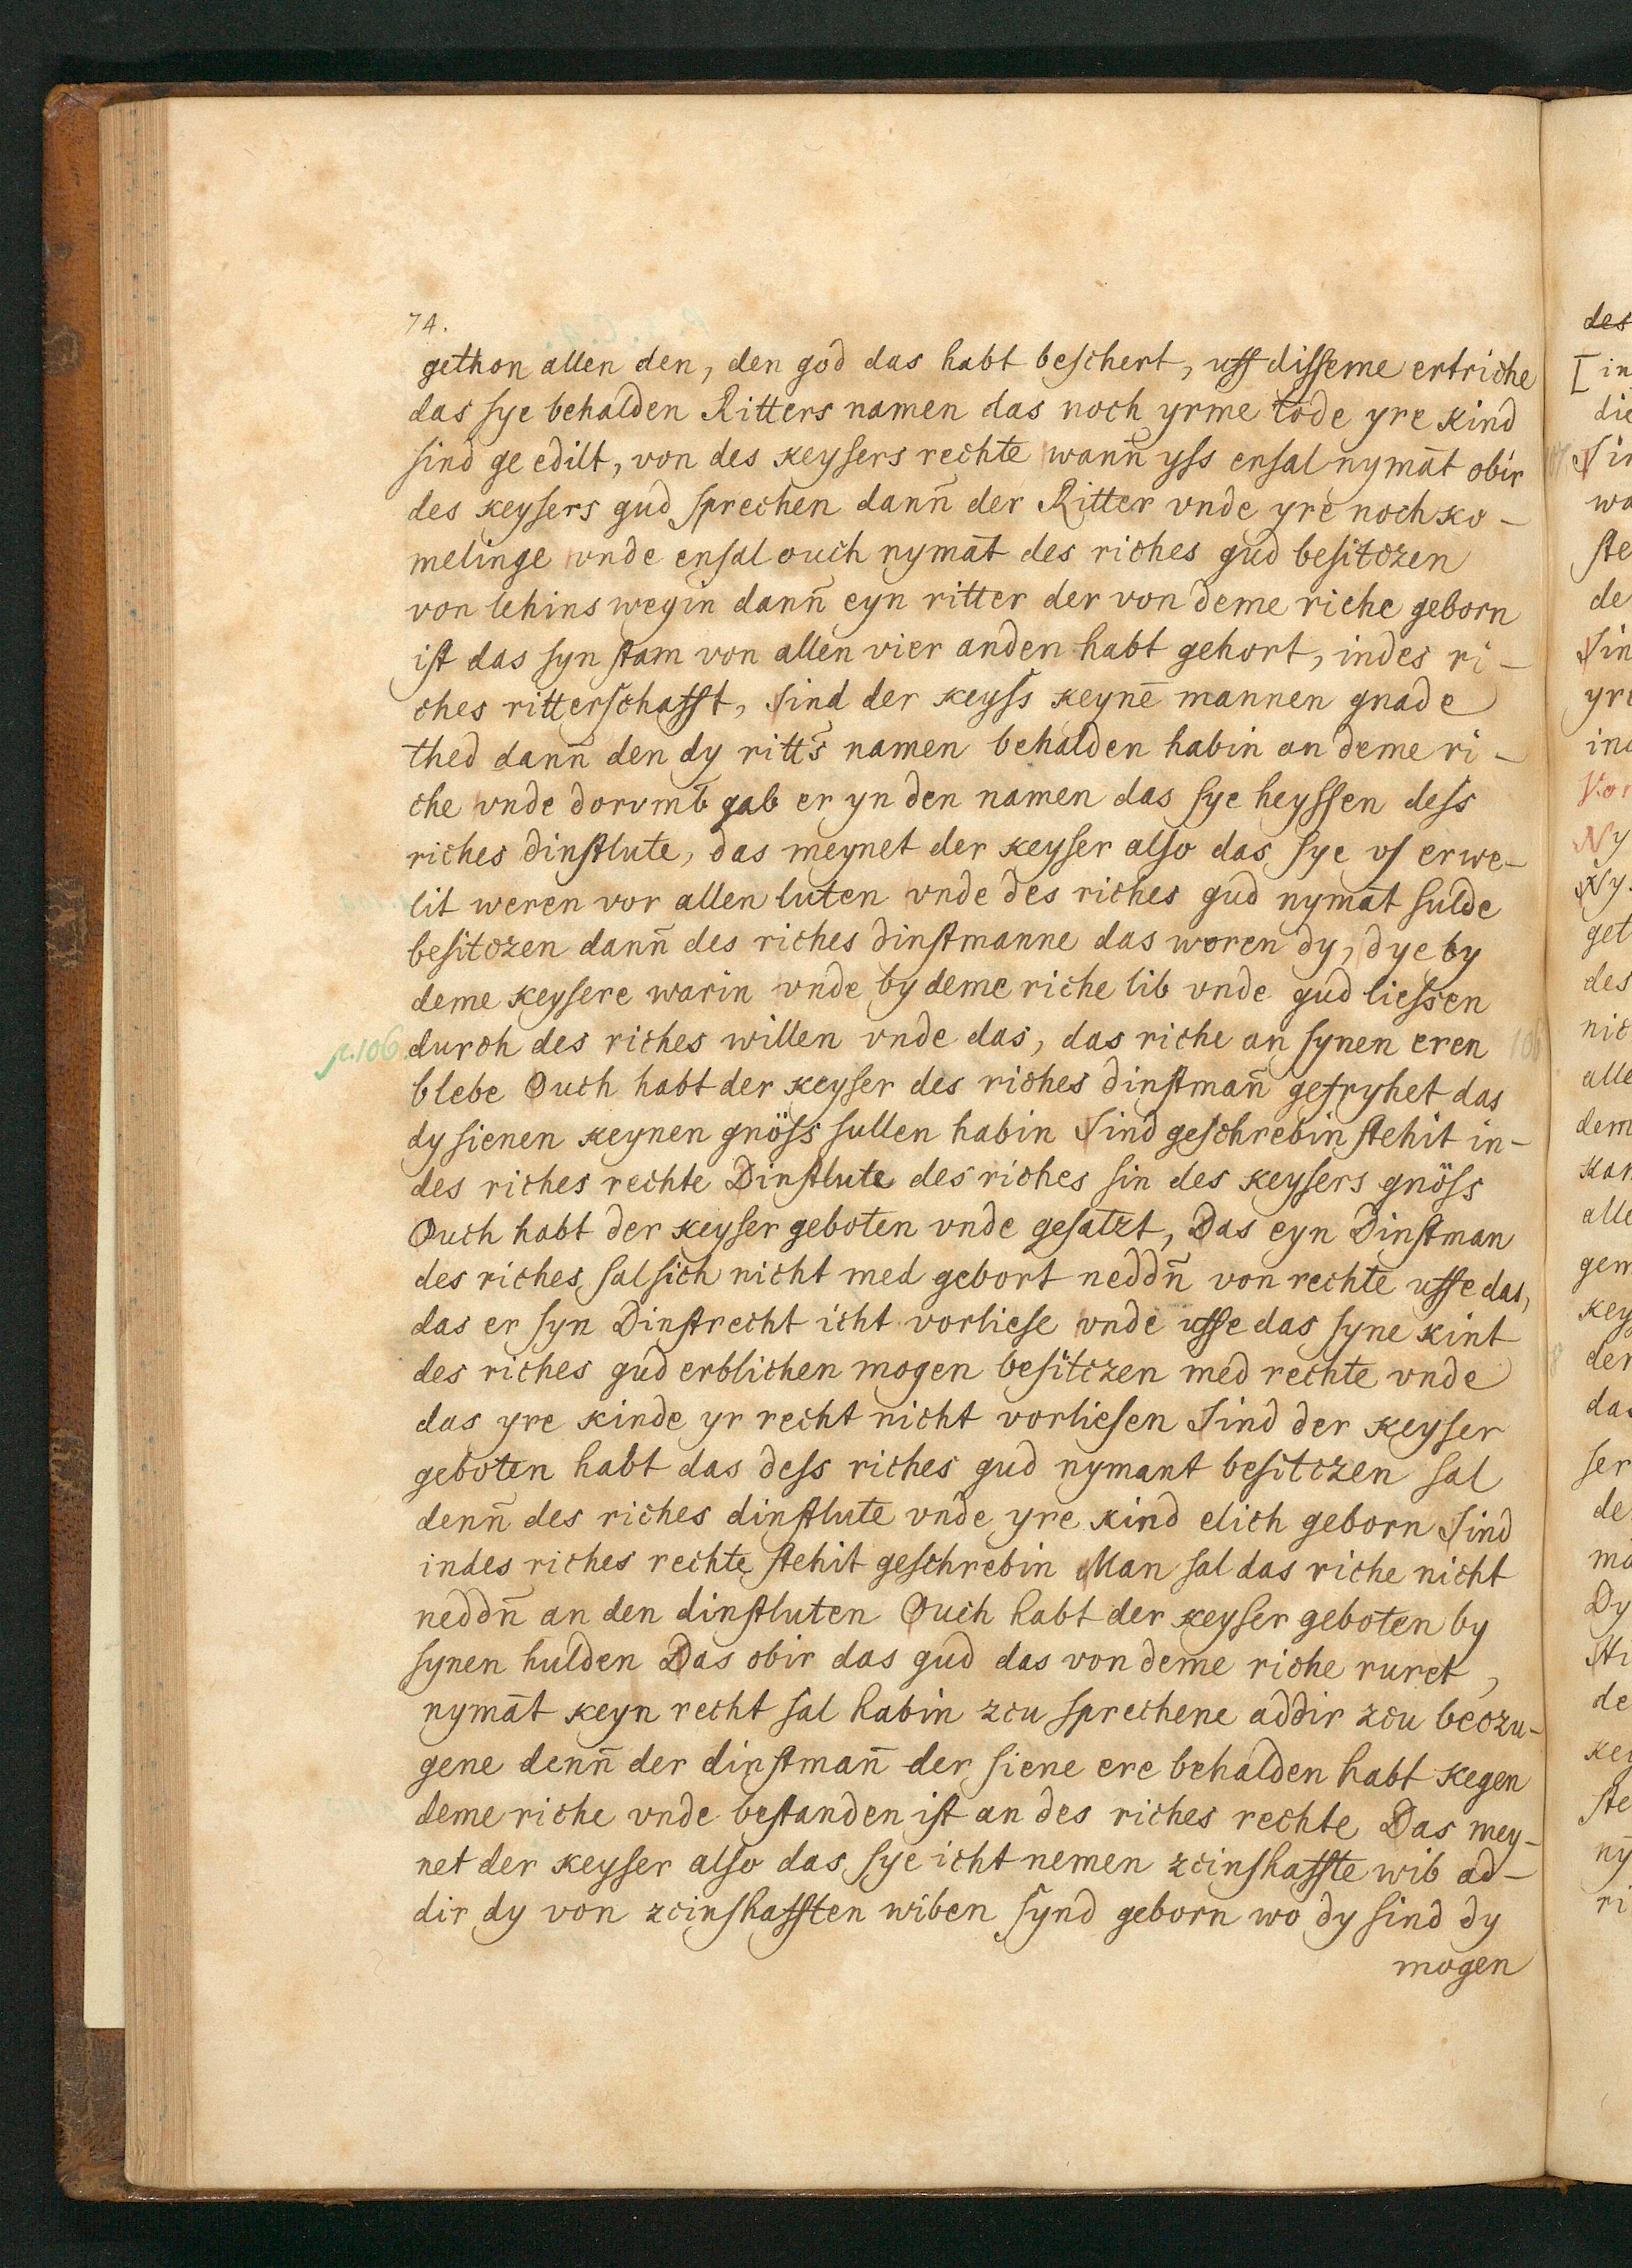 74.
gethon allen den, den god das habt beschert, uff disseme ertriche
das sye behalden Ritters namen das noch yrme tode yre kind
sind ge edilt, von des keysers rechte wann̄ yss ensal nymāt obir
des keysers gud sprechen dann̄ der Ritter vnde yre nochko-
melinge vnde ensal ouch nymāt des riches gud besitczen
von lehins wegin dann̄ eyn ritter der von deme riche geborn
ist das syn stam von allen vier anden habt gehort, indes ri-
ches ritterschafft, Sind der keyss keynē mannen gnade
thed dann̄ den dy ritt̄s namen behalden habin an deme ri-
che vnde dorvmb̄ gab er yn den namen das sye heyssen dess
riches dinstlute, das meynet der keyser also das sye vs erwe-
lit weren vor allen luten vnde des riches gud nymāt sulde
besitczen dann̄ des riches dinstmanne das woren dy, dye by
deme keysere warin vnde by deme riche lib vnde gud liessen
p.106. durch des riches willen vnde das, das riche an synen eren
blebe Ouch habt der keyser des riches dinstman̄ gefryhet das
dy sienen keynen gnöss sullen habin Sind geschrebin stehit in-
des riches rechte Dinstlute des riches sin des keysers gnöss
Ouch habt der keyser geboten vnde gesatzt, Das eyn Dinstman
des riches sal sich nicht med gebort neddn̄ von rechte uffe das,
das er syn Dinstrecht icht vorliese vnde uffe das syne kint
des riches gud erblichen mogen besitczen med rechte vnde
das yre kinde yr recht nicht vorliesen Sind der keyser
geboten habt das dess riches gud nymant besitczen sal
denn̄ des riches dinstlute vnde yre kind elich geborn Sind
indes riches rechte stehit geschrebin Man sal das riche nicht
neddn̄ an den dinstluten Ouch habt der keyser geboten by
synen hulden Das obir das gud das von deme riche ruret,
nymāt keyn recht sal habin zcu sprechene addir zcu beczu-
gene denn̄ der dinstman̄ der siene ere behalden habt kegen
deme riche vnde bestanden ist an des riches rechte Das mey-
net der keyser also das sye icht nemen zcinshaffte wib ad-
dir dy von zcinshafften wiben synd geborn wo dy sind dy
mogen